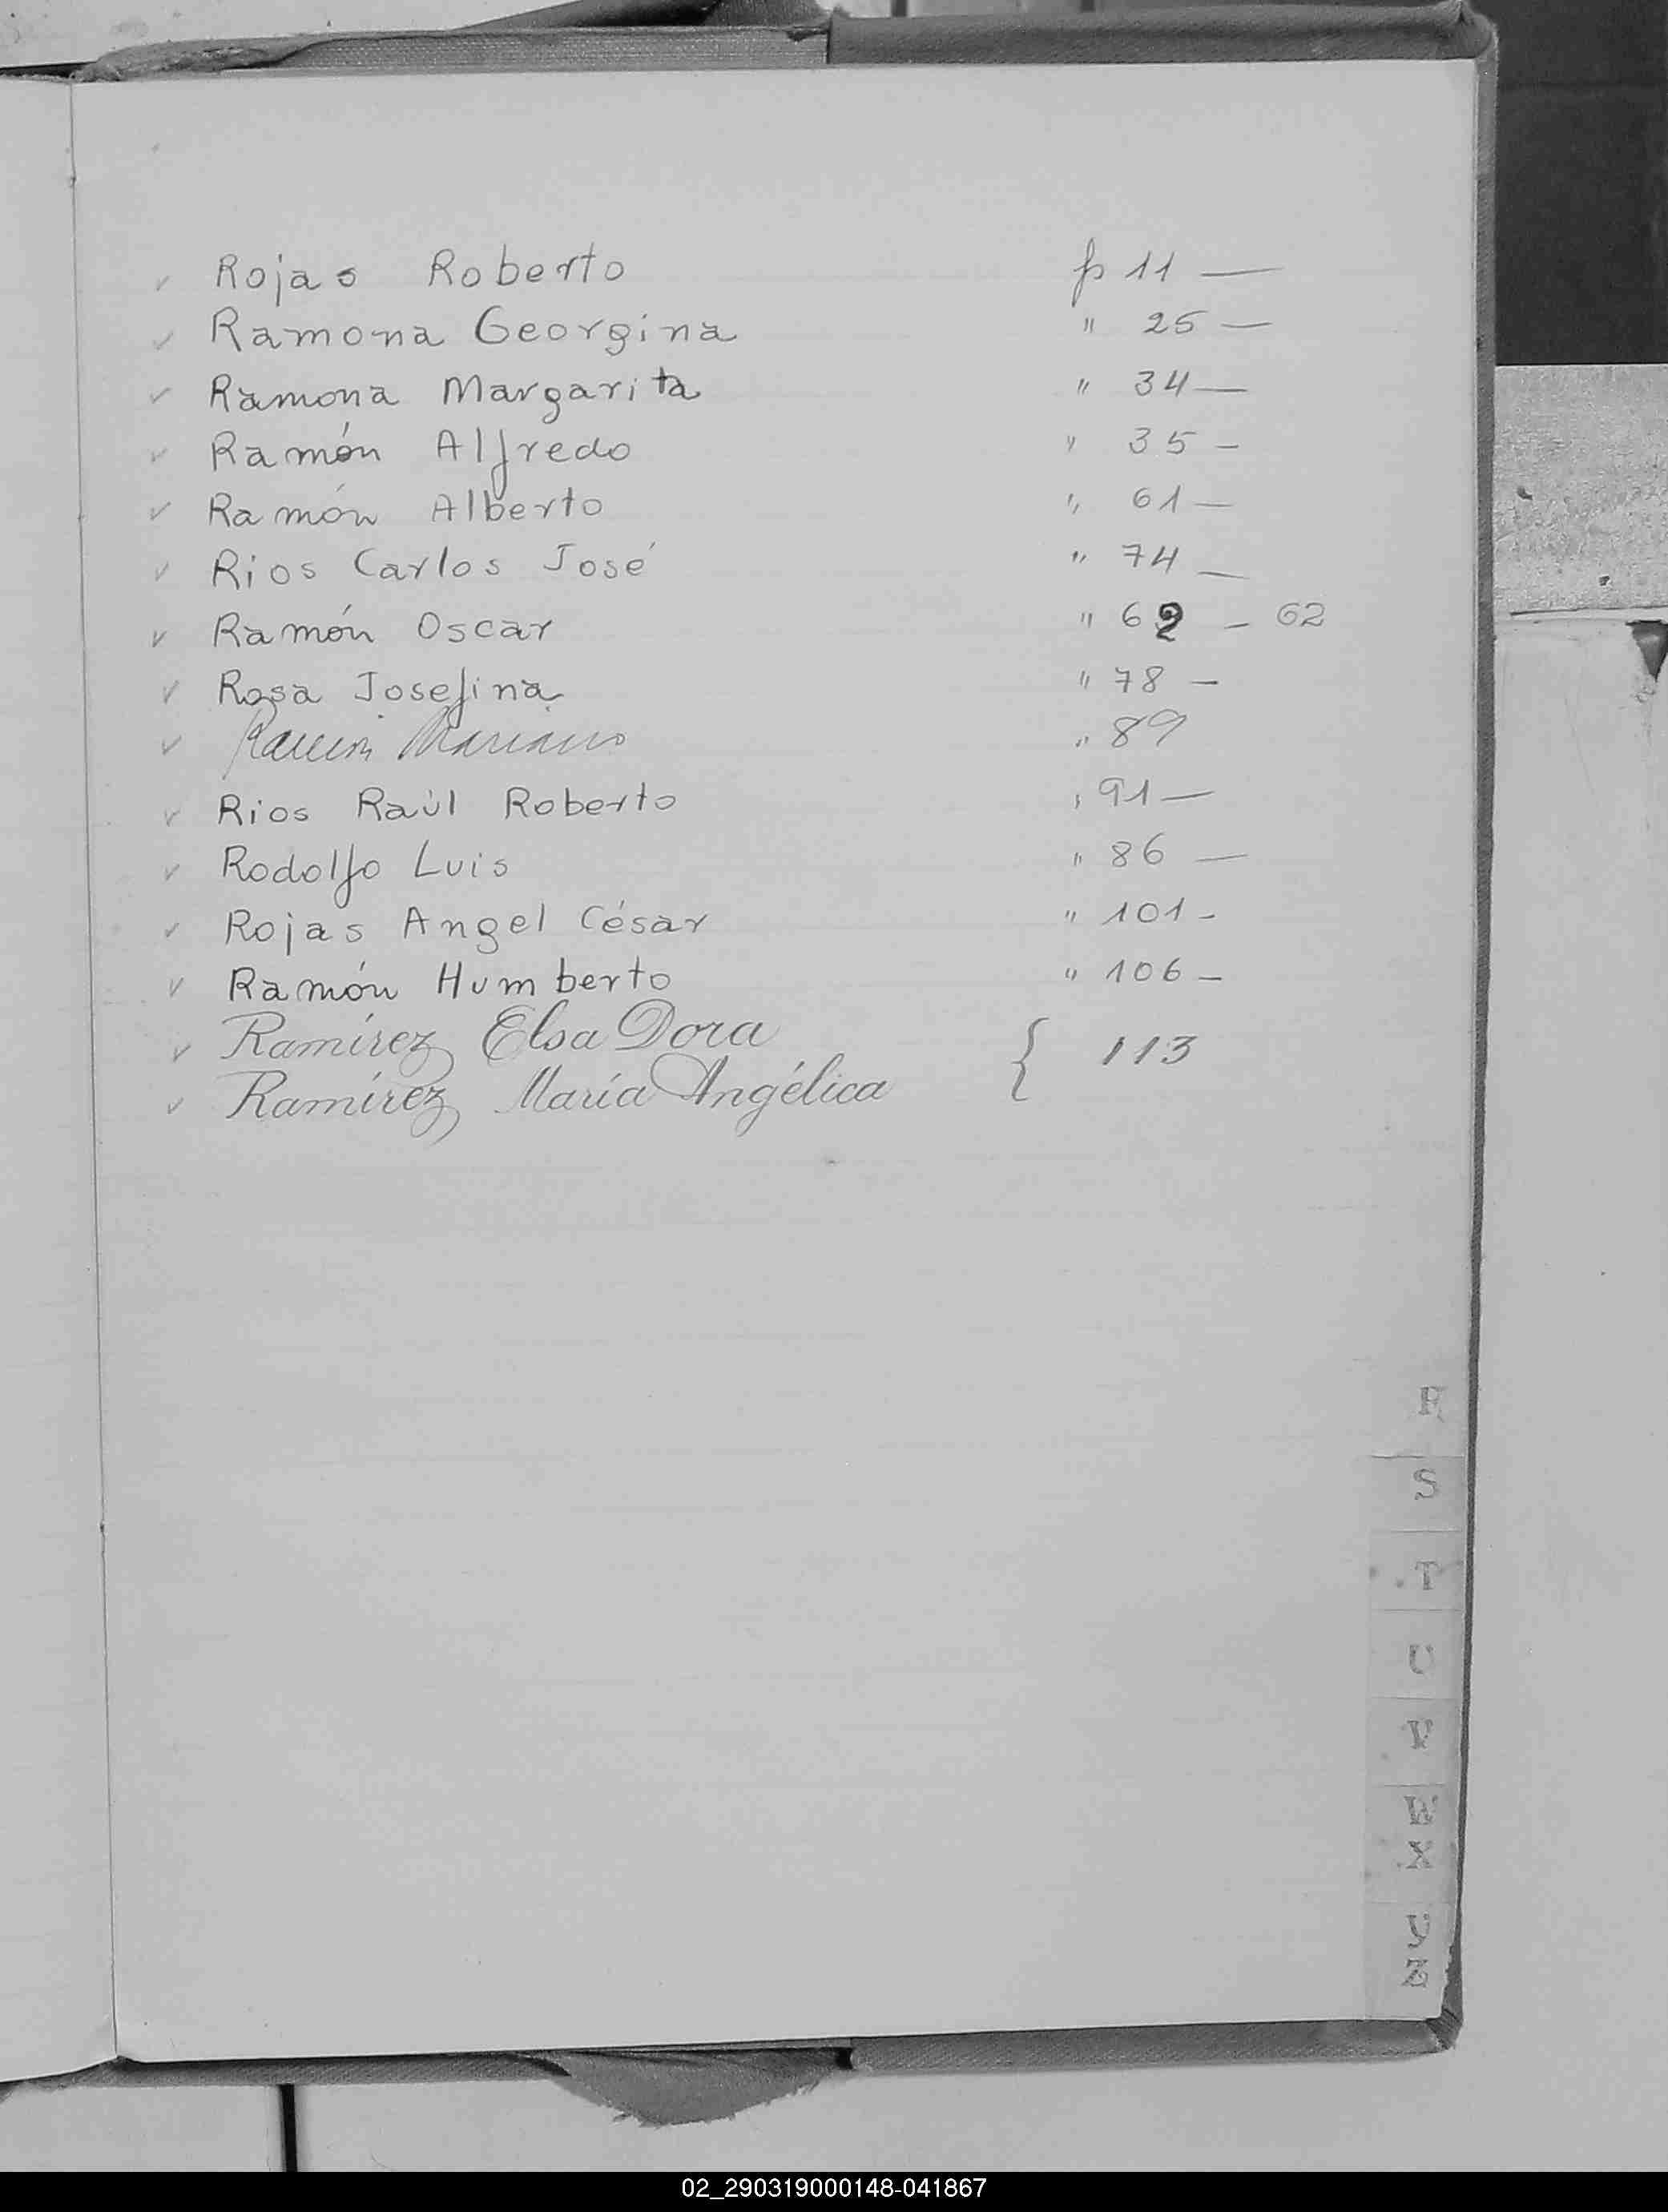 ✓ Rojas Roberto p 11 —
✓ Ramona Georgina " 25 —
✓ Ramona Margarita " 34 —
✓ Ramón Alfredo " 35 —
✓ Ramón Alberto " 61 —
✓ Rios Carlos José " 74 —
✓ Ramón Oscar " 62 — 62
✓ Rosa Josefina " 78 —
✓ Ramón Mariano " 89
✓ Rios Raúl Roberto " 91 —
✓ Rodolfo Luis " 86 —
✓ Rojas Angel César " 101 -
✓ Ramón Humberto " 106 —
✓ Ramírez Elsa Dora { 113
✓ Ramírez María Angélica
R
S
T
U
V
W
X
Y
Z
02_290319000148-041867